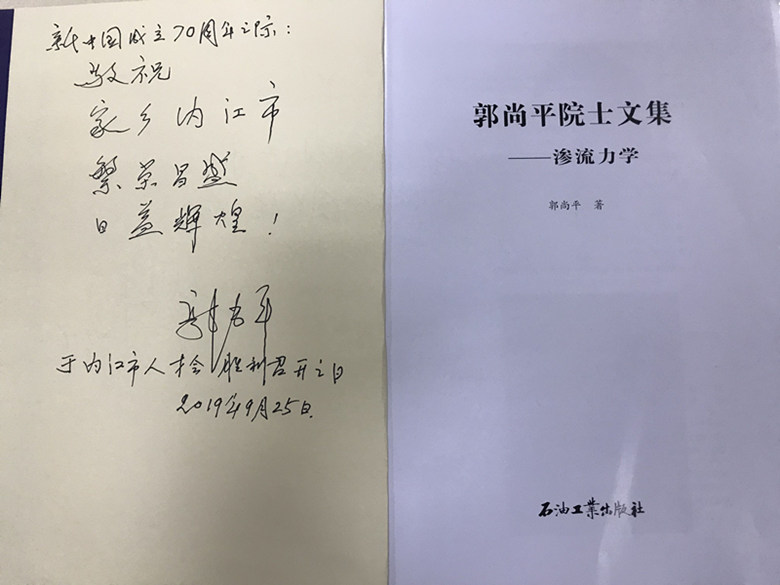 新中国成立70周年之际：
敬祝
家乡内江市
繁荣昌盛
日益辉煌！
郭尚平
于内江市人才会胜利召开之日
2019年9月25日
郭尚平院士文集
——渗流力学
郭尚平 著
石油工业出版社